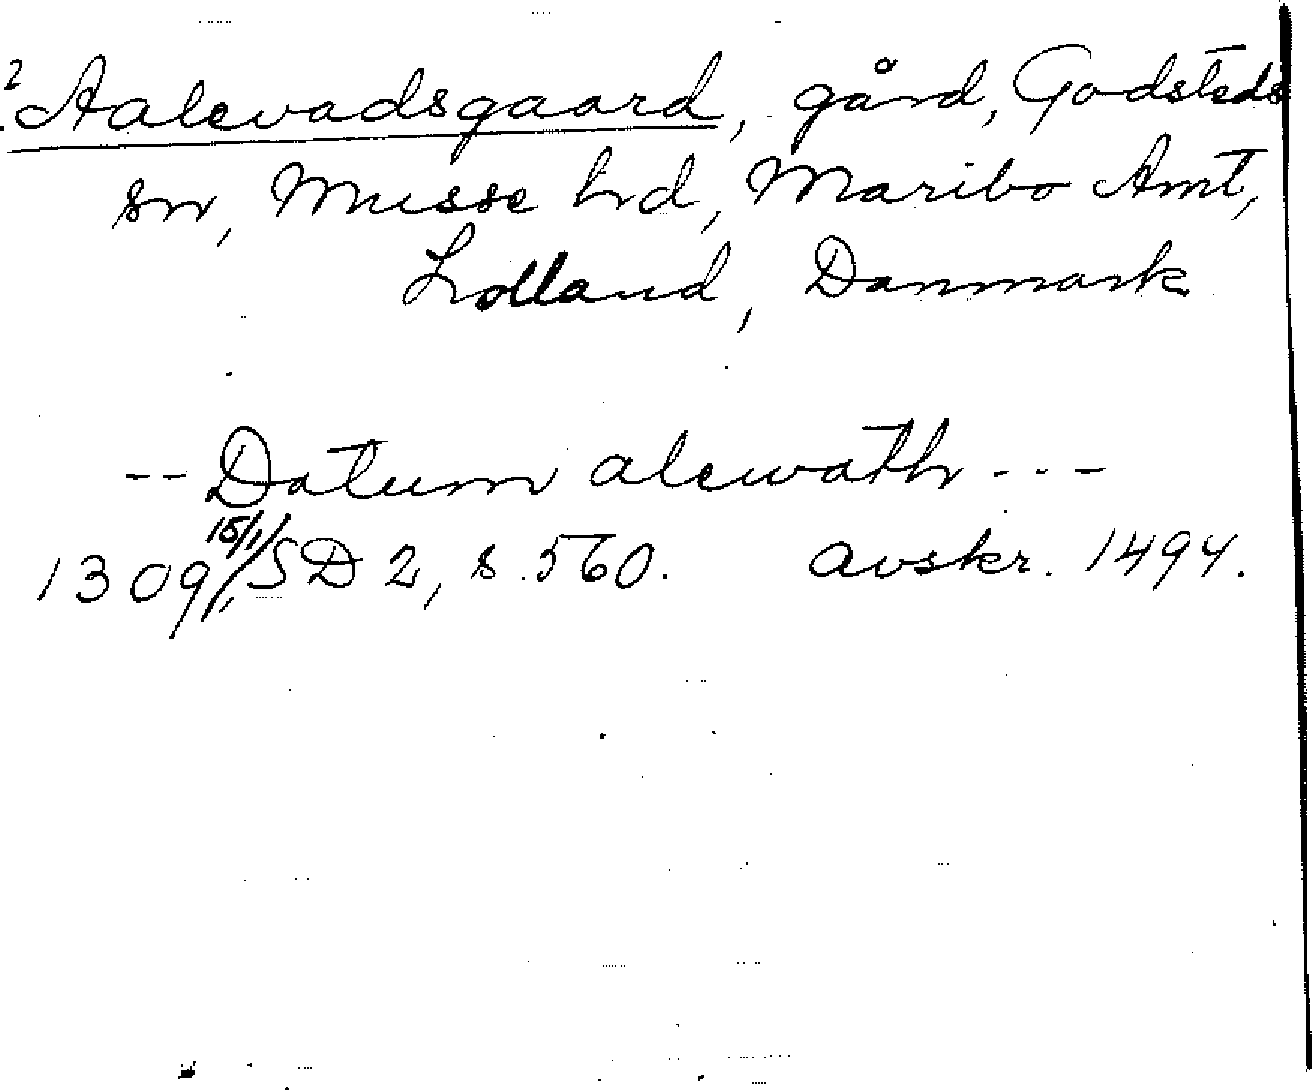 ? Aalevadsgaard, gård, Godsteds
sn, Musse hrd, Maribo Amt,
Lolland, Danmark
-- Datum alewath ---
1309 15/1, SD 2, s. 560. avskr. 1494.